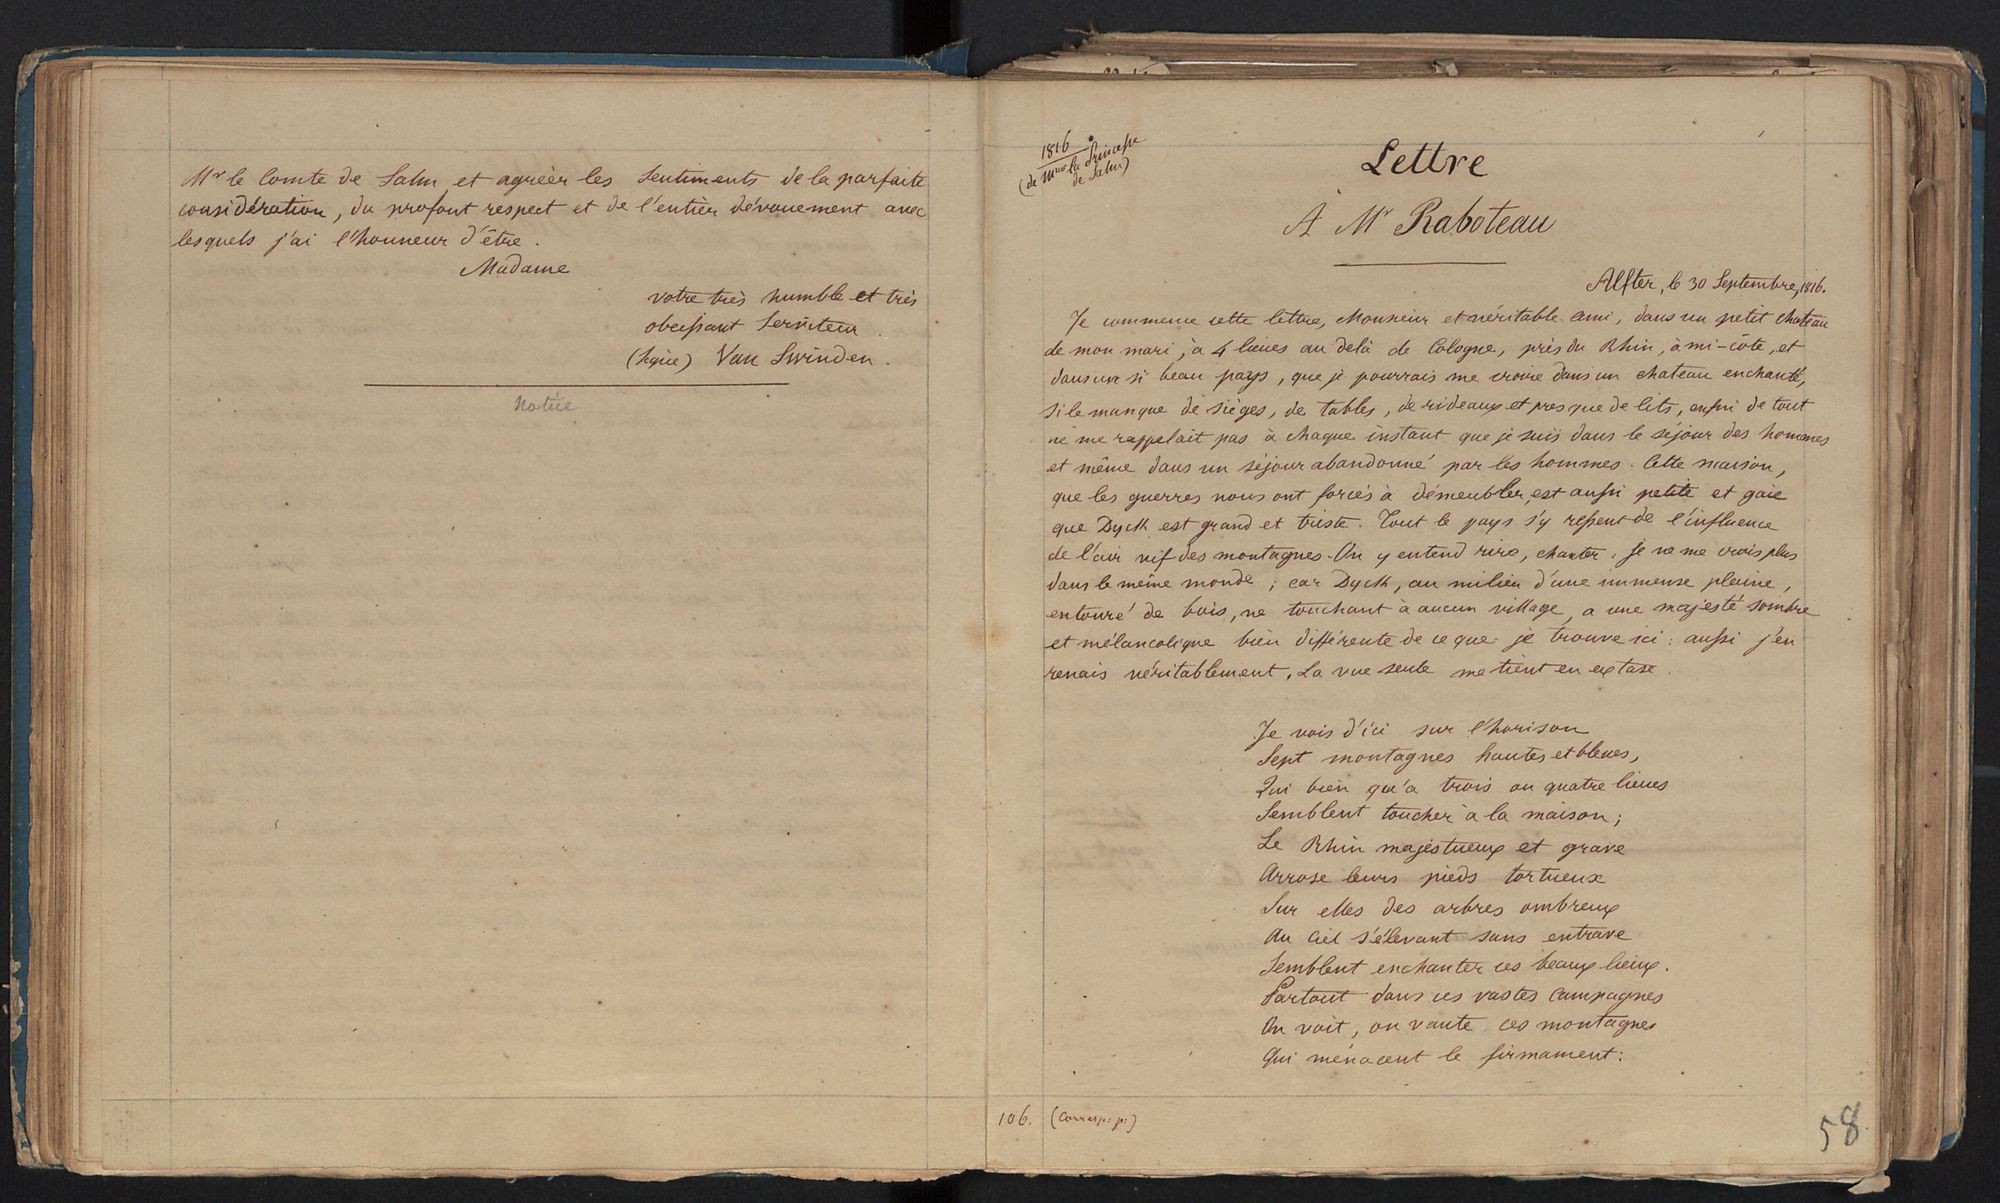 Mr le Comte de Salm et agréér les Sentiments de la parfaite
considération, du profont respect et de l'entier dévouement avec
lesquels j'ai l'honneur d'être.
Madame
votre très humble et très
obeissant Serviteur.
(Signé) Van Swinden.
Notice
1816
(de Mme la Princesse
de Salm)
Lettre
A Mr Raboteau
Alfter, le 30 Septembre, 1816.
Je commence cette lettre, Monsieur et véritable ami, dans un petit chateau
de mon mari, à 4 lieues au delà de Cologne, près du Rhin, à mi-côte, et
dans un si beau pays, que je pourrais me croire dans un chateau enchanté,
si le manque de sièges, de tables, de rideaux et presque de lits, enfin de tout
ne me rappelait pas à chaque instant que je suis dans le séjour des hommes
et même dans un séjour abandonné par les hommes. Cette maison,
que les guerres nous ont forcés à démeubler, est aussi petite et gaie
que Dyck est grand et triste. Tout le pays s'y ressent de l'influence
de l'air vif des montagnes. On y entend rire, chanter: je ne me crois plus
dans le même monde; car Dyck, au milieu d'une immense plaine,
entouré de bois, ne touchant à aucun village, a une majesté sombre
et mélancolique bien différente de ce que je trouve ici: aussi j'en
renais véritablement. La vue seule me tient en extase.
Je vois d'ici sur l'horison
Sept montagnes hautes et bleues,
Qui bien qu'à trois ou quatre lieues
Semblent toucher à la maison;
Le Rhin majestueux et grave
Arrose leurs pieds tortueux
Sur elles des arbres ombreux
Au Ciel s'élevant sans entrave
Semblent enchanter ces beaux lieux.
Partout dans ces vastes campagnes
On voit, on vante ces montagnes
Qui ménacent le firmament:
106. (Corresp: p:)
58